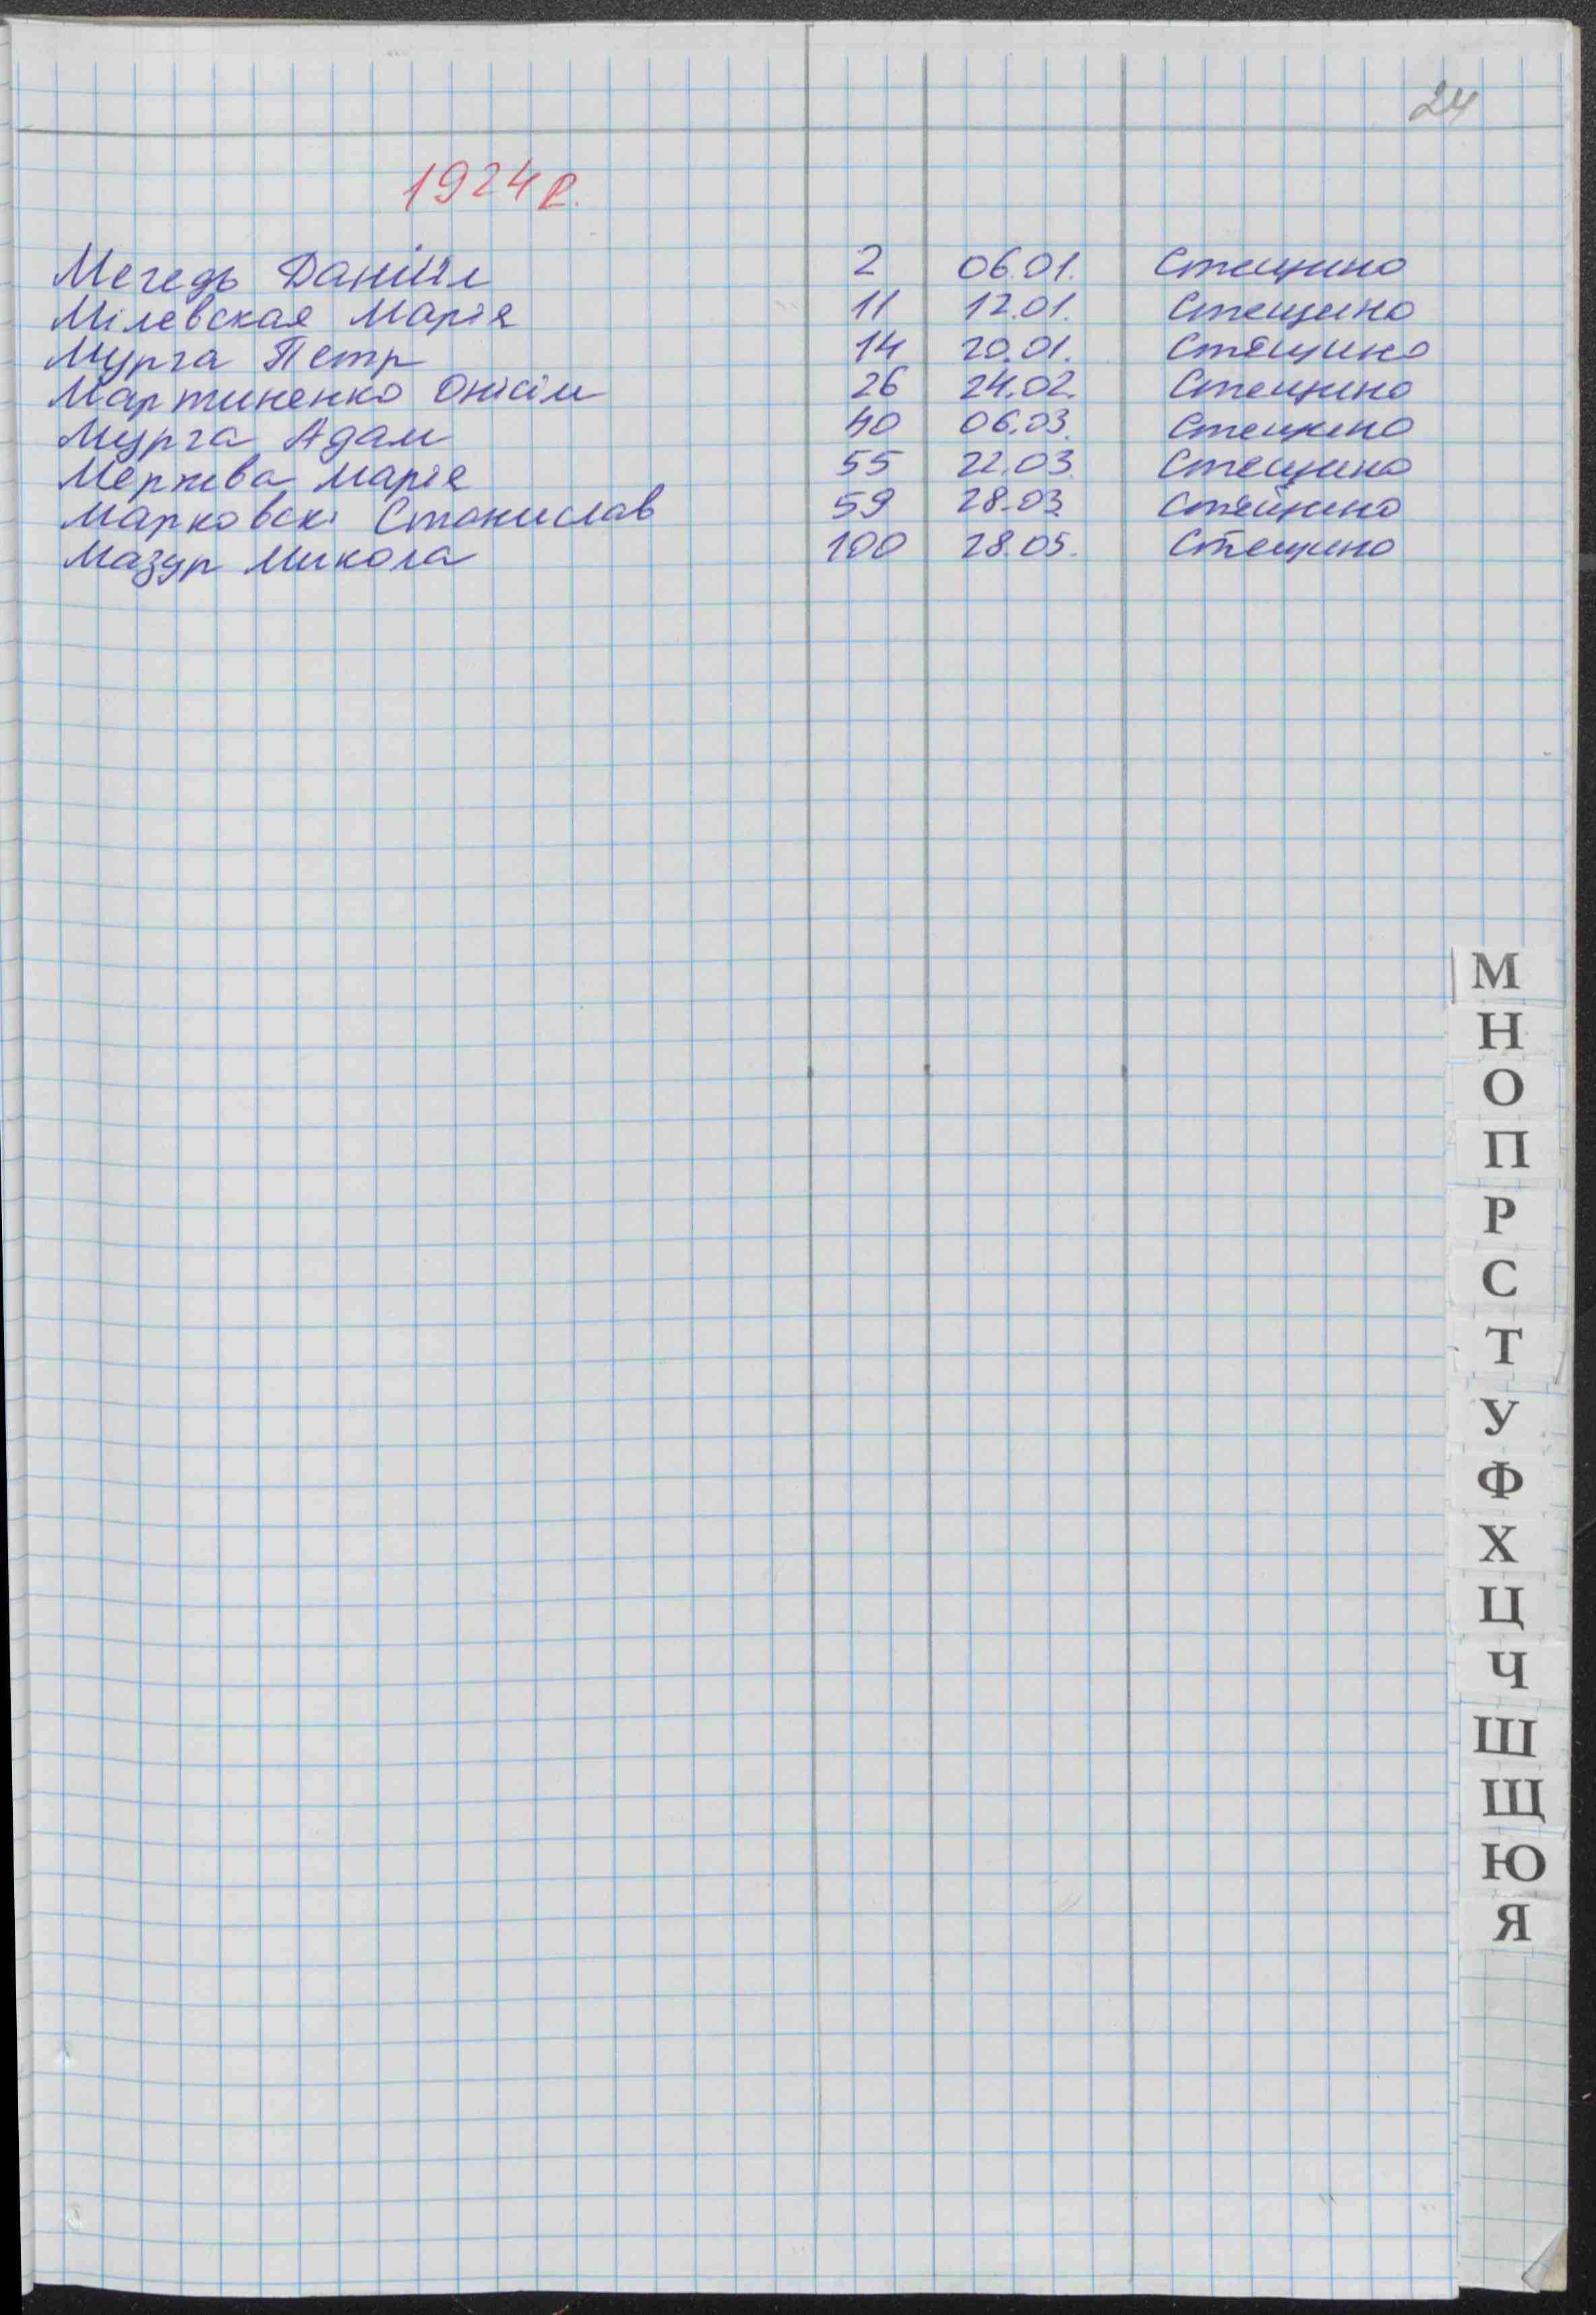 24
1924 р.
Мегедь Даниїл 2 06.01. Стецино
Мілевская Марія 11 12.01. Стецино
Мурга Петр 14 20.01. Стецино
Мартиненко Онісім 26 24.02. Стецино
Мурга Адам 40 06.03. Стецино
Мертва Марія 55 22.03 Стецино
Марковскі Станислав 59 28.03 Стецино
Мазур Микола 100 28.05. Стецино
М
Н
О
П
Р
С
Т
У
Ф
Х
Ц
Ч
Ш
Щ
Ю
Я